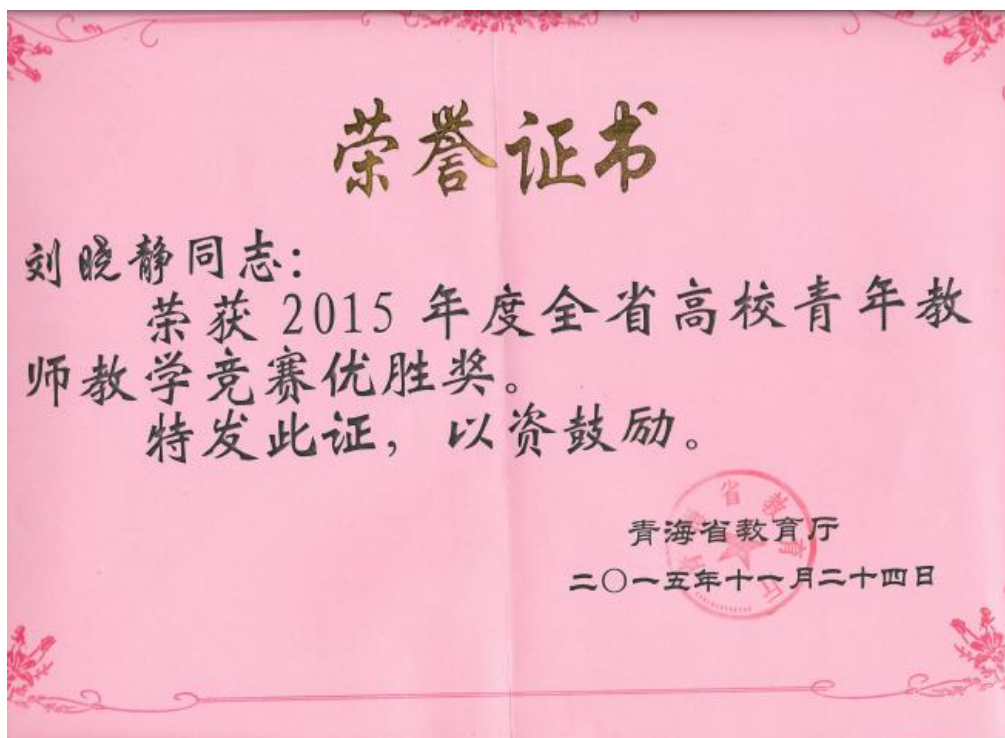 荣誉证书
刘晓静同志：
荣获 2015 年度全省高校青年教
师教学竞赛优胜奖。
特发此证，以资鼓励。
青海省教育厅
二〇一五年十一月二十四日
青海省教育厅